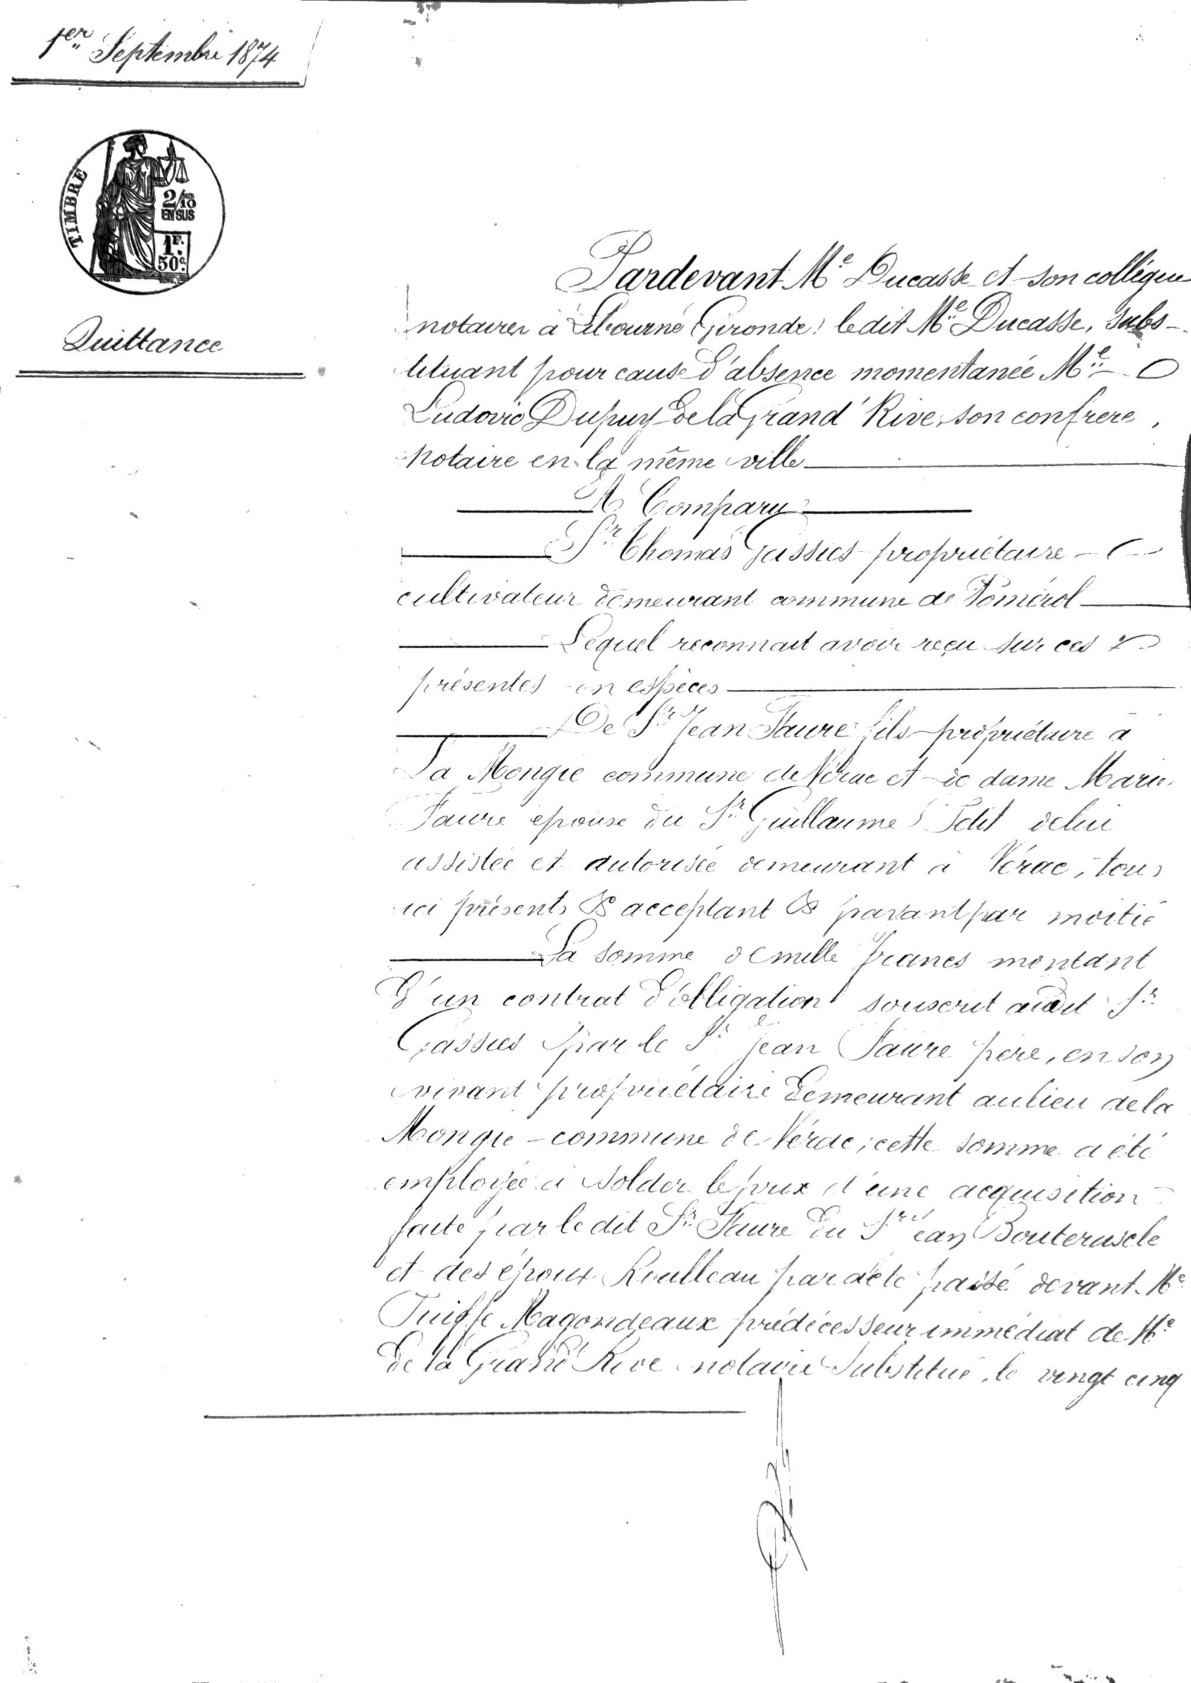 1er Septembre 1874
TIMBRE
2/10
EN SUS
1F.
50c.
Quittance
Pardevant Me Ducasse et son collègue
notaires à Libourne (Gironde) ledit Me Ducasse, subs-
tituant pour cause d'absence momentanée Me
Ludovic Dupuy de la Grand'Rive, son confrere,
notaire en la même ville
A Comparu
Sr Thomas Gassies propriétaire
cultivateur demeurant commune de Pomérol
Lequel reconnait avoir reçu sur ces
présentes en espèces
De Sr Jean Faure fils propriétaire à
La Mongie commune de Vérac et de dame Marie
Faure épouse du Sr Guillaume Petit de lui
assistée et autorisée demeurant à Vérac, tous
ici présents & acceptant & payant par moitié
La somme de mille francs montant
d'un contrat d'obligation souscrit audit Sr
Gassies par le Sr Jean Faure père, en son
vivant propriétaire demeurant au lieu de la
Mongie commune de Vérac; cette somme a été
employée à solder le prix d'une acquisition
faite par le dit Sr Faure du Sr Jean Bouteruscle
et des époux Roulleau par acte passé devant Me
Magondeaux prédécesseur immédiat de Me
De la Grand'Rive notaire substitué, le vingt cinq